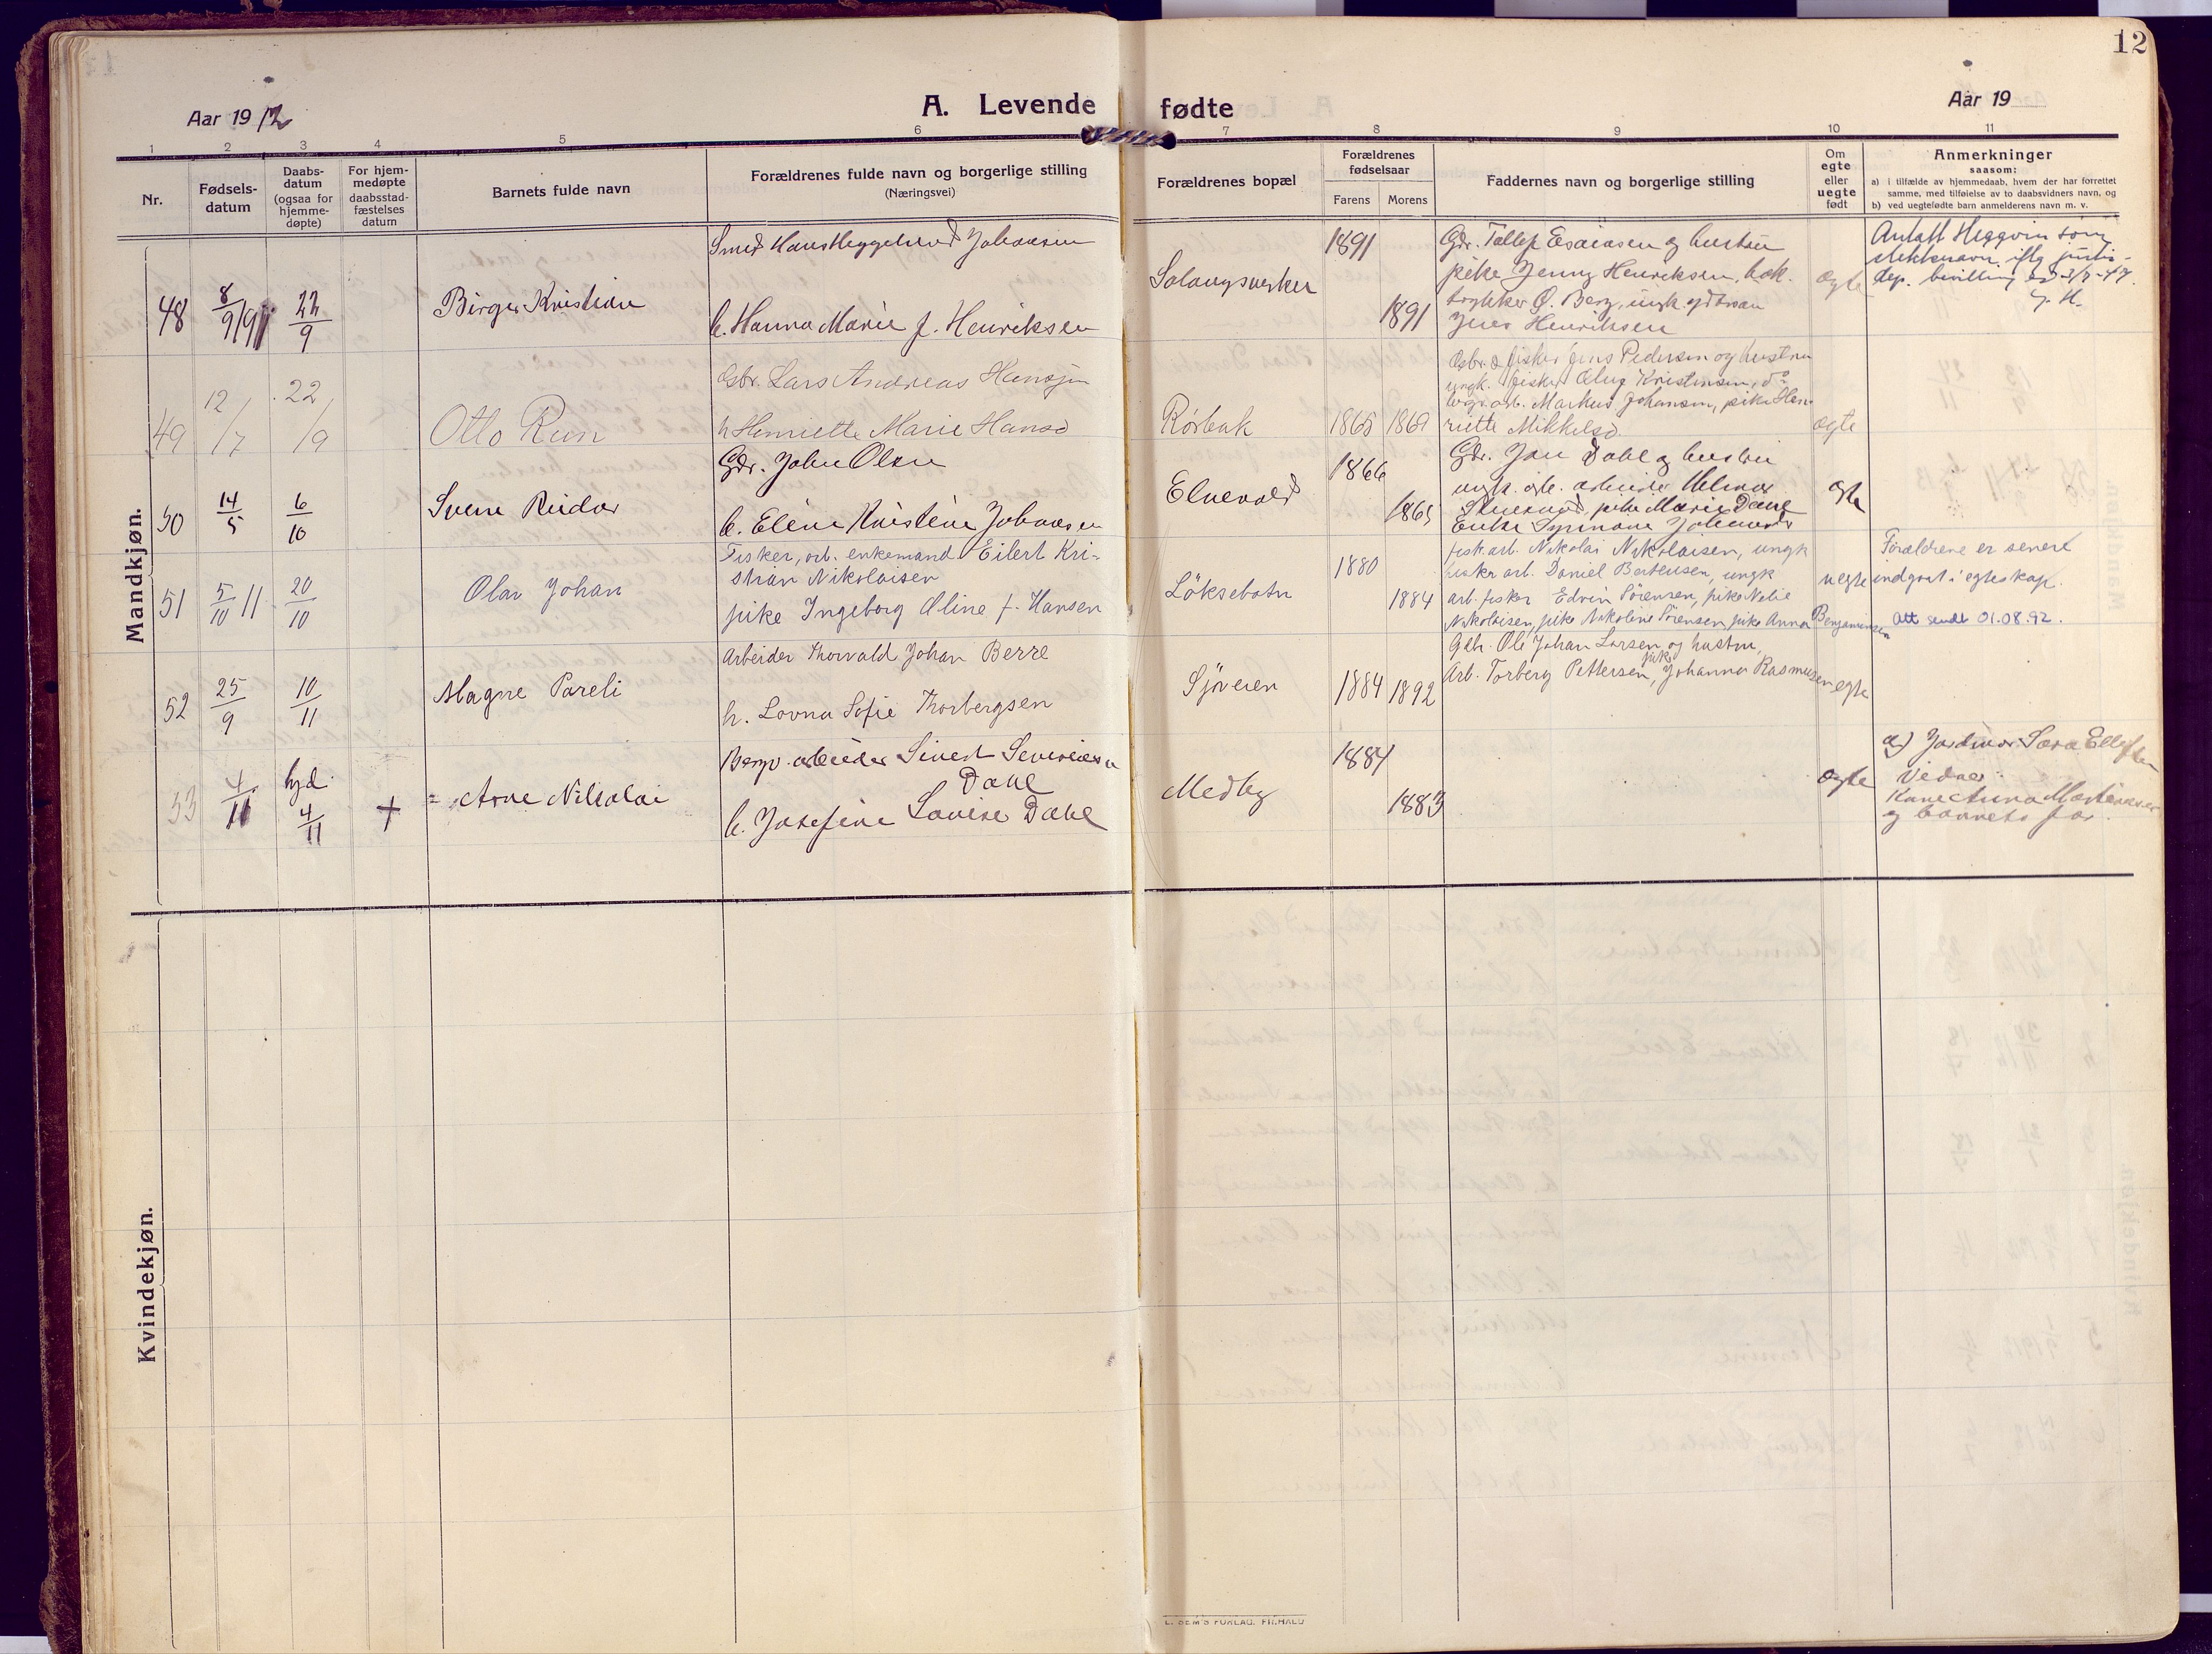 12
Aar 1912
A. Levende fødte
Aar 19
1 2 3 4 5 6 7 8 9 10 11
Nr.
Fødsels-
datum
Daabs-
datum
(ogsaa for
hjemme-
døpte)
For hjem-
medøpte
daabsstad-
fæstelses
datum
Barnets fulde navn
Forældrenes fulde navn og borgerlige stilling
(Næringsvei)
Forældrenes bopæl
Forældrenes
fødselsaar
Farens Morens
Faddernes navn og borgerlige stilling
Om
egte
eller
uegte
født
Anmerkninger
saasom:
a) i tilfælde av hjemmedaab, hvem der har forrettet
samme, med tilføielse av to daabsvidners navn, og
b) ved uegtefødte barn anmelderens navn m. v.
Mandkjøn.
48
8/9
22/9
Birger Kristian
Smed Hans Johansen
h. Hanna Marie f. Henriksen
Salangsverket
1891
1891
Gdr. Tollef Esaiasen og hustru
pike Jenny Henriksen, bok-
trykker O. Berg, ungk.
Jens Henriksen
egte
Antatt Heggvin som
slektsnavn iflg justis-
dep. bevilling
49
12/7
22/9
Otto
Gsbr. Lars Andreas Hansen
h Henriette Marie Hansd
Rørbak
1865 1869
Gsbr. & fisker Jens Pedersen og hustru
ungk. fisker Kristensen, do
arb. Markus Johansen, pike Hen-
riette Mikkelsd.
egte
50
14/5
6/10
Sverre Reidar
Gdr. John Olsen
h. Eline Kristine Johansen
Elvevold
1866
1865
Gdr. Jan Dahl og hustru
ungk. arbeider Helmer
pike Marie Dahl
Enke
egte
51
5/10 11
20/10
Olav Johan
Fisker, arb. enkemand Eilert Kri-
stian Nikolaisen
pike Ingeborg Oline f. Hansen
Løksebotn
1880
1884
fisk. arb. Nikolai Nikolaisen, ungk
fisker arb. Daniel Berteusen, ungk
arb. fisker Edvin Sørensen, pike
Nikolaisen, pike Nikoline Sørensen, pike Anna Benjaminsen
uegte
Forældrene er senere
indgaat i egteskap.
Att sendt 01.08.92.
52
25/9
10/11
Magne Pareli
Arbeider Thorvald Johan Berre
h. Lovna Sofie Thorbergsen
Sjøveien
1884 1892
Gdbr. Ole Johan Larsen og hustru,
Arb. Torberg Pettersen, pike Johanna Rasmussen
egte
53
4/11
hjd.
4/11
+
Arne Nikolai
Bergv. arbeider Sivert
Dahl
h. Josefine Lovise Dahl
Medby
1884
1883
egte
a) Jordmor Sara
Vidner:
Kone Anna
og barnets far.
Kvindekjøn.
FORLAG. FR.HALD